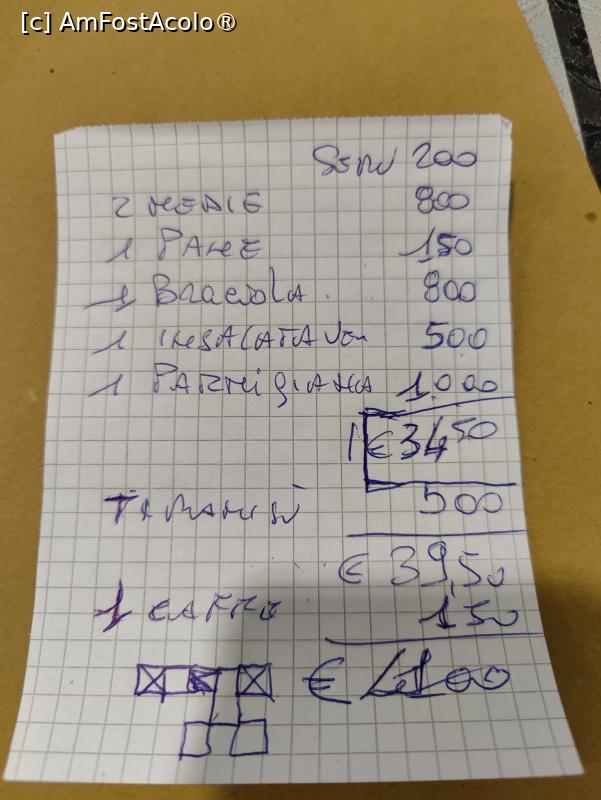 [c] AmFostAcolo®
Serv 200
2 MEDIE 800
1 PANE 150
1 Braciola 800
1 INSALATA Ver 500
1 PARMIGIANA 1000
€ 34 50
TIRAMISÙ 500
€ 39,50
1 CAFFE 150
€ 41 00